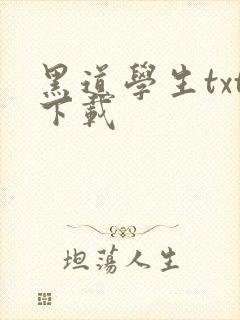 黑道學生txt
下載
坦蕩人生